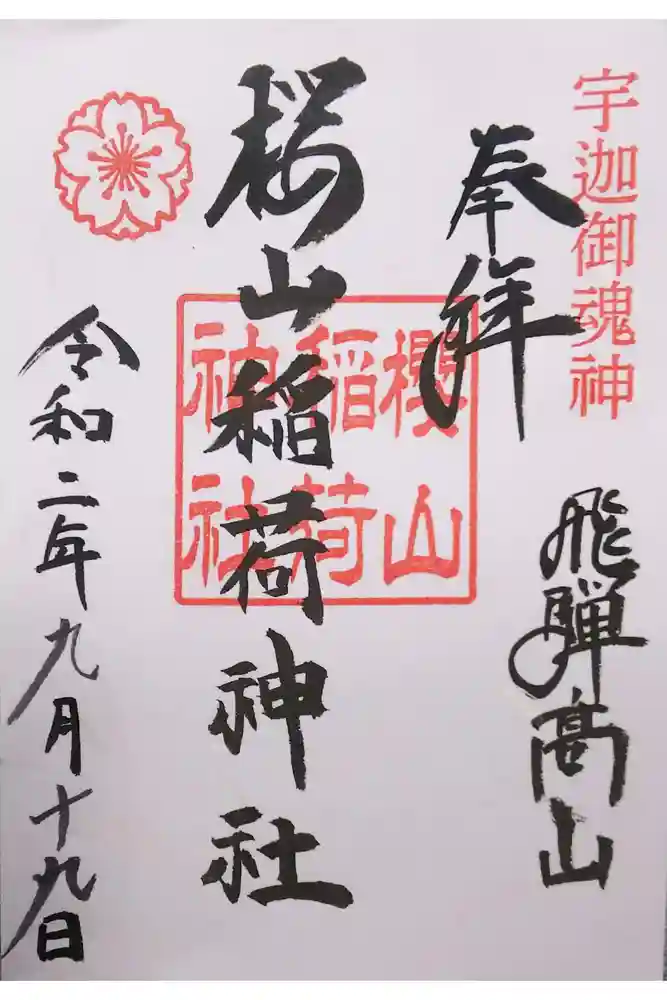 宇迦御魂神
奉拝
飛騨高山
櫻山
稲荷
神社
桜山稲荷神社
令和二年九月十九日